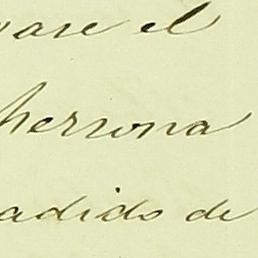 vare el
herrona
adido de